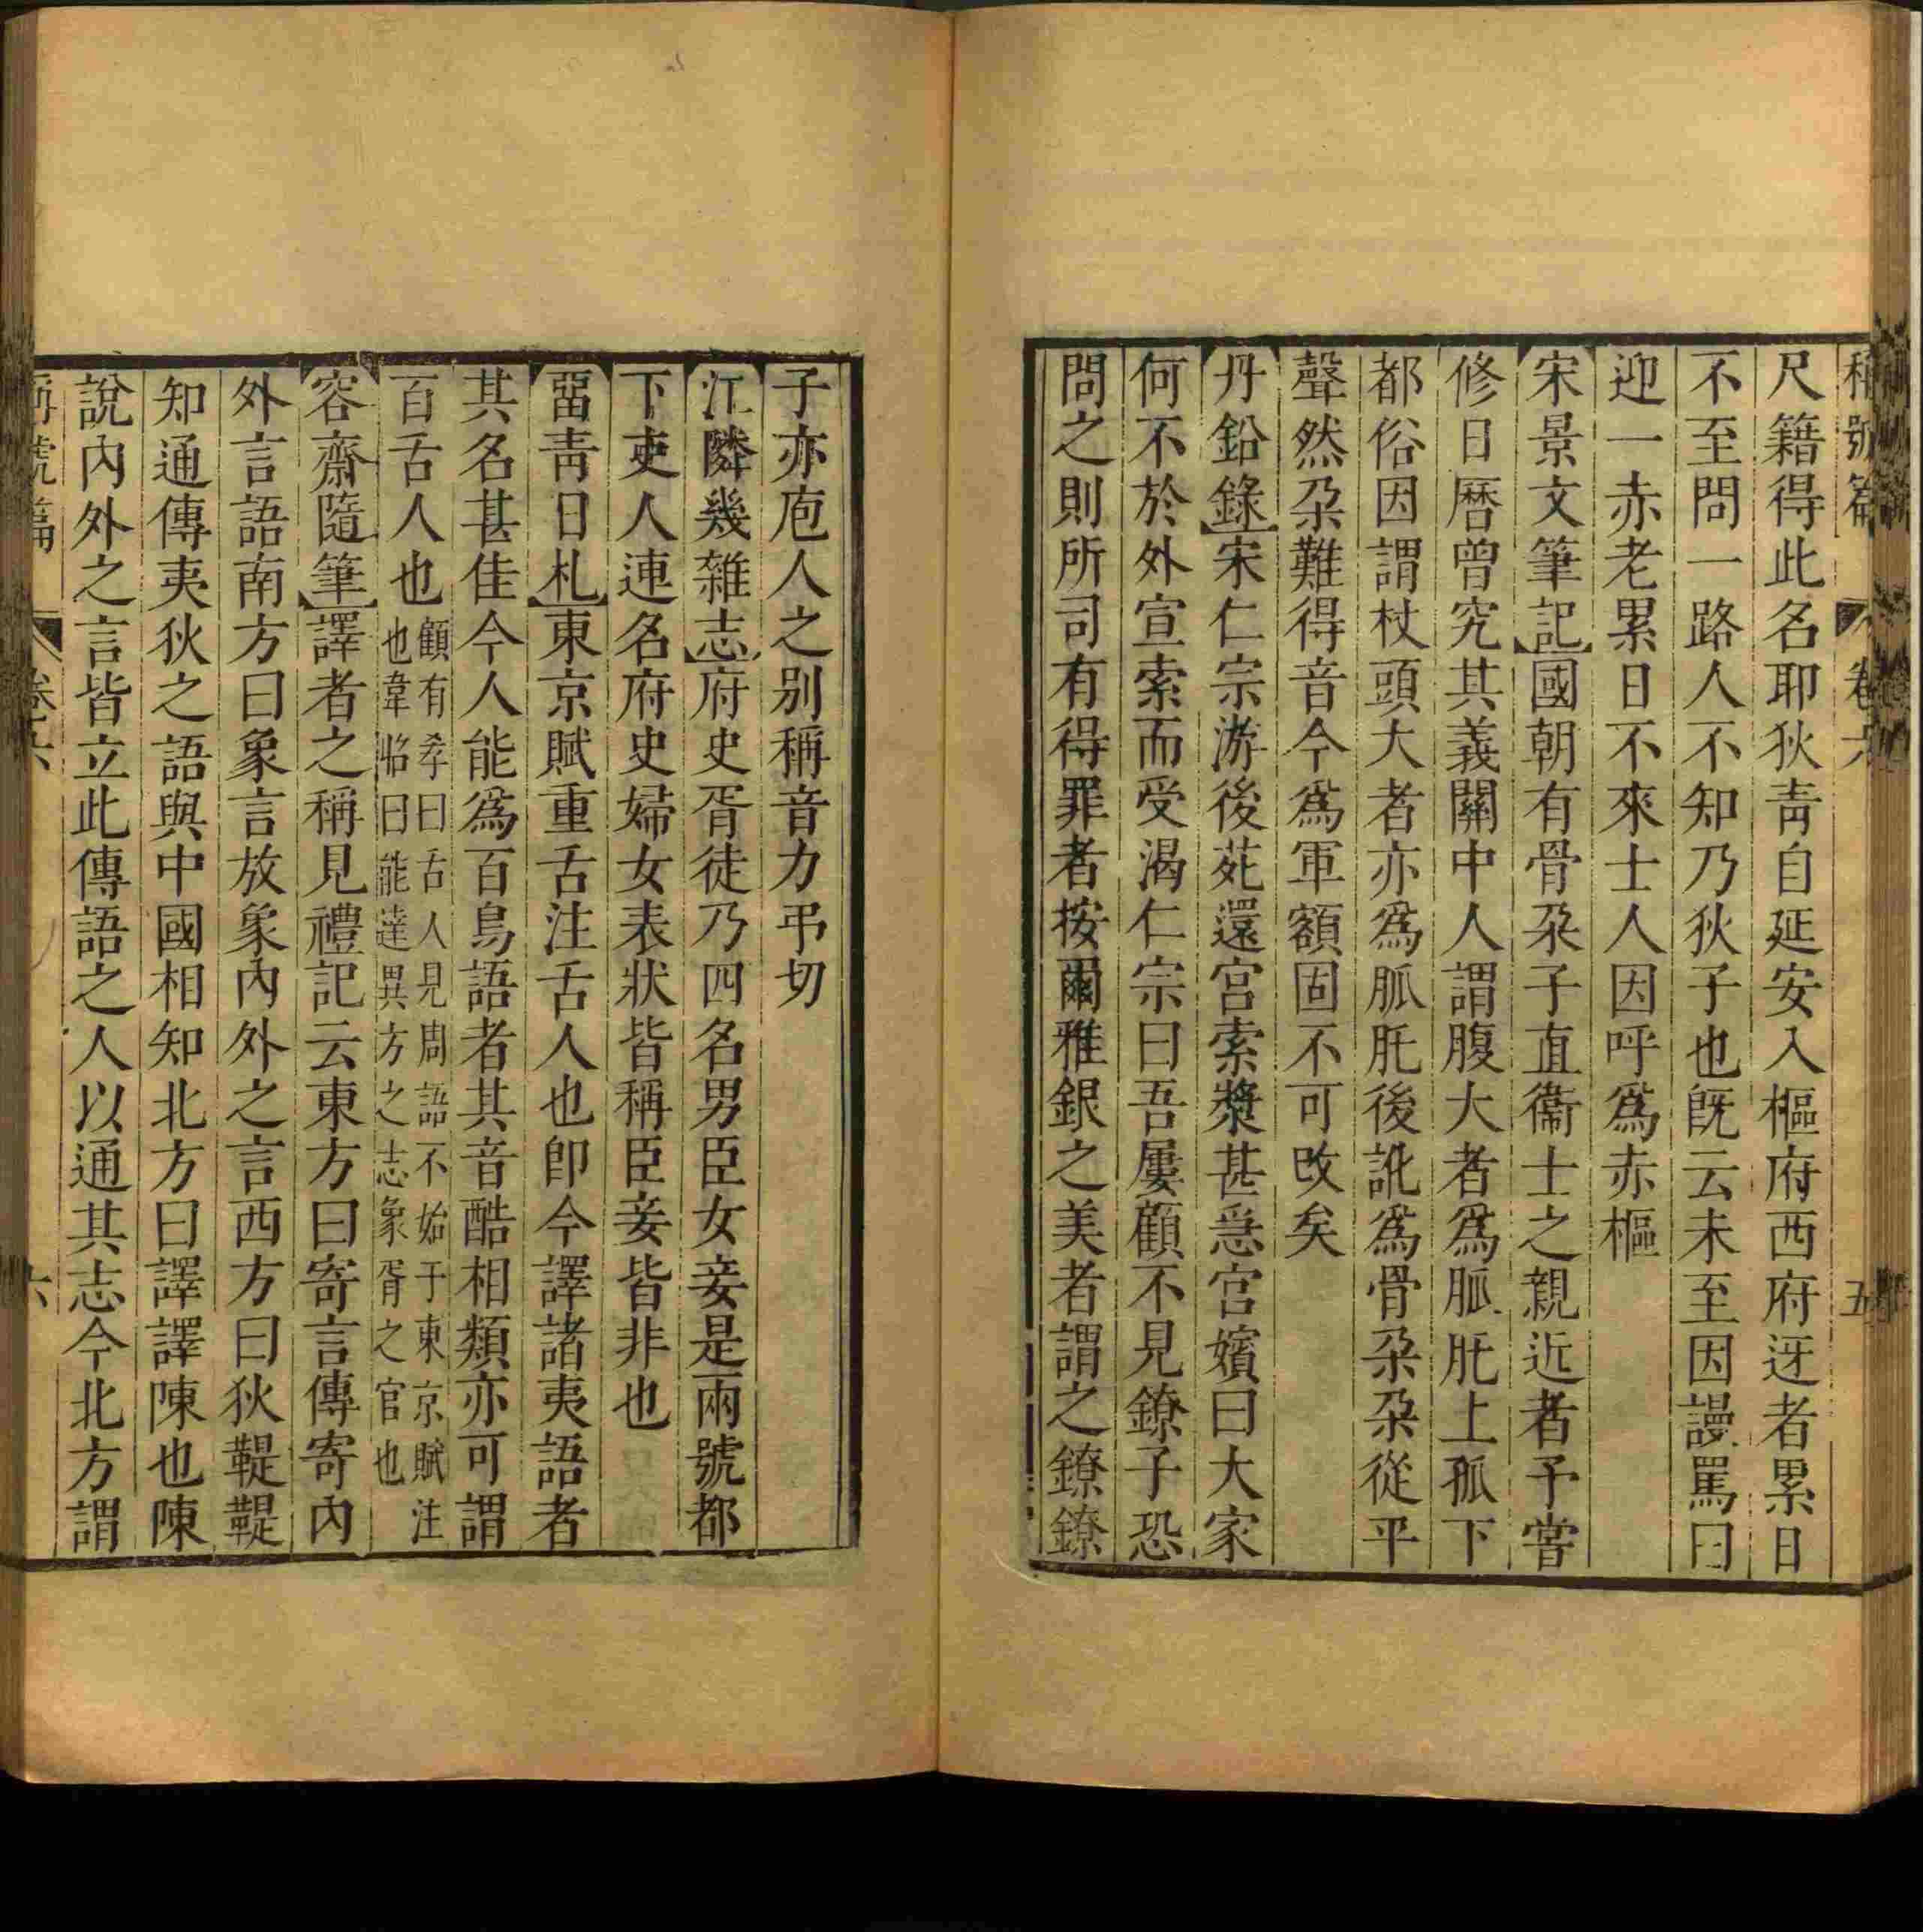 稱號篇 卷六 五
尺籍得此名耶狄靑自延安入樞府西府迓者累日
不至問一路人不知乃狄子也旣云未至因謾罵曰
迎一赤老累日不來士人因呼爲赤樞
宋景文筆記國朝有骨朶子直衞士之親近者予嘗
修日曆曾究其義關中人謂腹大者爲胍肫上孤下
都俗因謂杖頭大者亦爲胍肫後訛爲骨朶朶從平
聲然朶難得音今爲軍額固不可改矣
丹鉛錄宋仁宗游後苑還宮索漿甚急宮嬪曰大家
何不於外宣索而受渴仁宗曰吾屢顧不見鐐子恐
問之則所司有得罪者按爾雅銀之美者謂之鐐鐐
子亦庖人之别稱音力弔切
江隣幾雜志府史胥徒乃四名男臣女妾是兩號都
下吏人連名府史婦女表狀皆稱臣妾皆非也
畱靑日札東京賦重舌注舌人也卽今譯諸夷語者
其名甚佳今人能爲百鳥語者其音酷相類亦可謂
百舌人也顧有孝曰舌人見周語不始于東京賦注
也韋昭曰能達異方之志象胥之官也
容齋隨筆譯者之稱見禮記云東方曰寄言傳寄內
外言語南方曰象言放象內外之言西方曰狄鞮鞮
知通傳夷狄之語與中國相知北方曰譯譯陳也陳
說內外之言皆立此傳語之人以通其志今北方謂
稱號篇 卷六 六